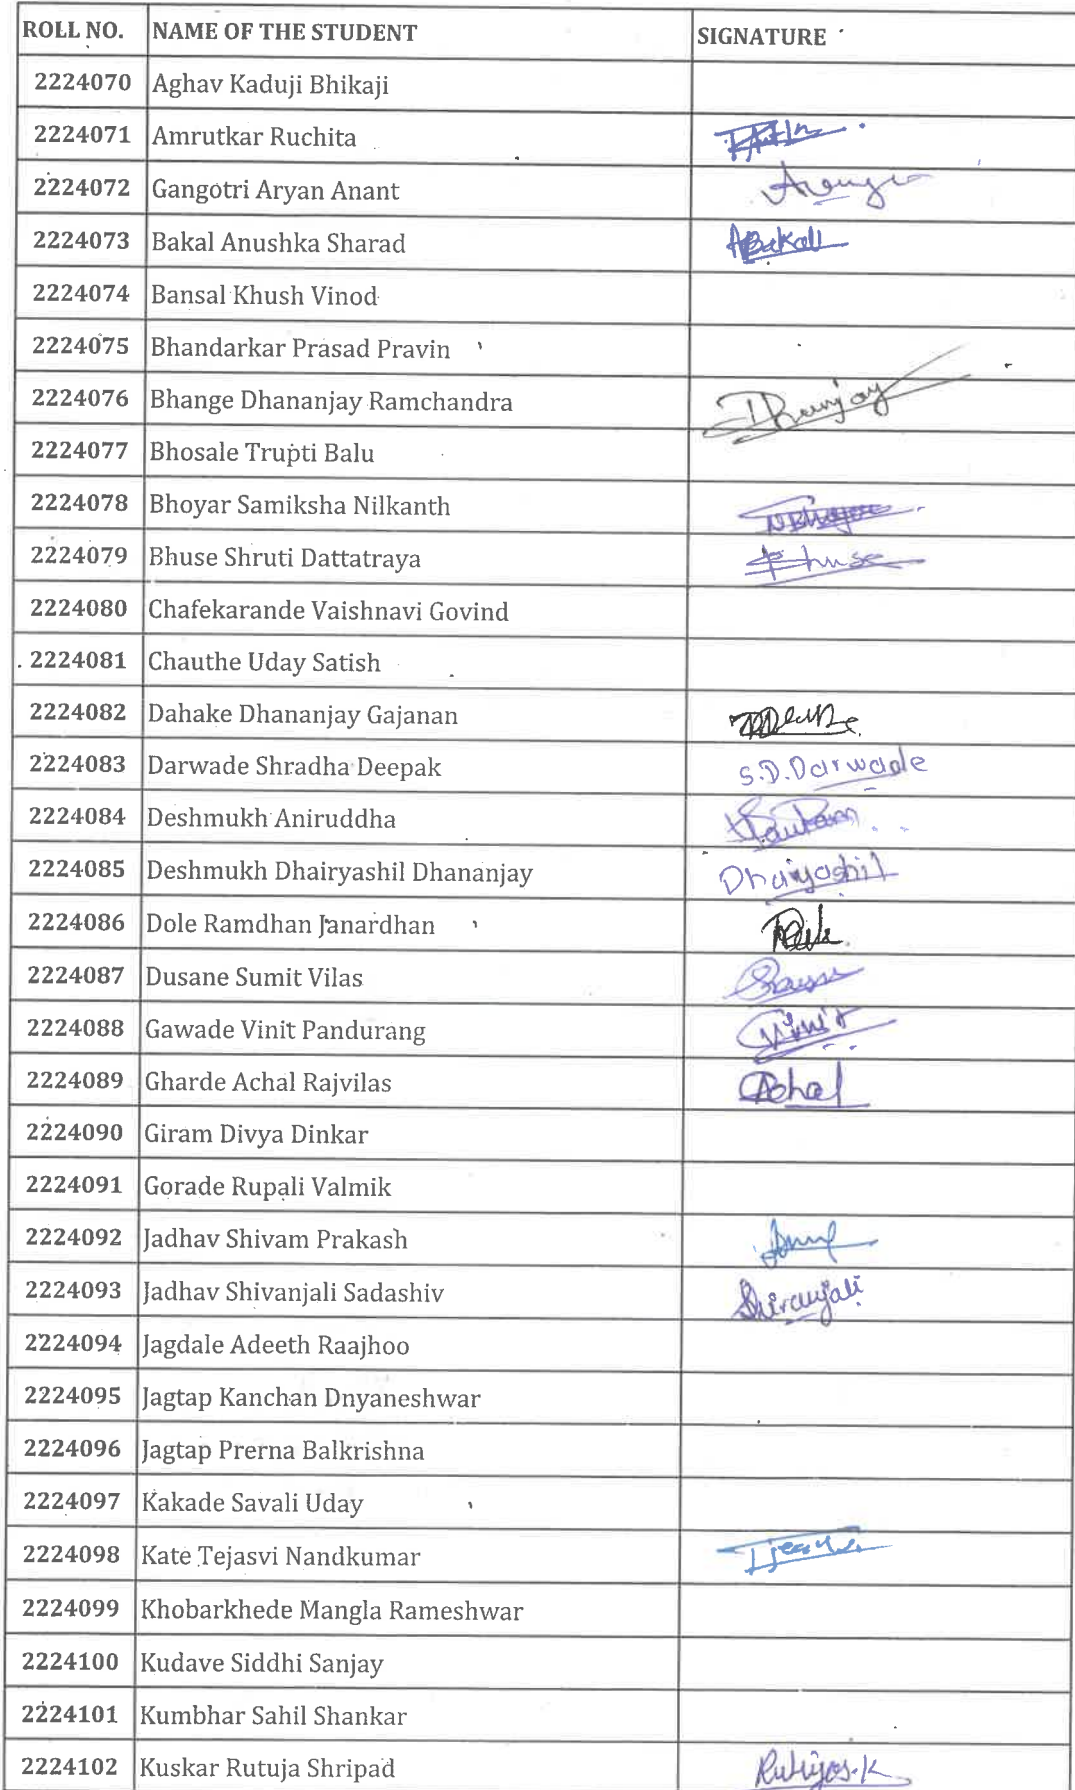 ROLL NO. NAME OF THE STUDENT SIGNATURE
2224070 Aghav Kaduji Bhikaji
2224071 Amrutkar Ruchita
2224072 Gangotri Aryan Anant
2224073 Bakal Anushka Sharad ABakal
2224074 Bansal Khush Vinod
2224075 Bhandarkar Prasad Pravin
2224076 Bhange Dhananjay Ramchandra
2224077 Bhosale Trupti Balu
2224078 Bhoyar Samiksha Nilkanth
2224079 Bhuse Shruti Dattatraya Bhuse
2224080 Chafekarande Vaishnavi Govind
2224081 Chauthe Uday Satish
2224082 Dahake Dhananjay Gajanan
2224083 Darwade Shradha Deepak S.D.Darwade
2224084 Deshmukh Aniruddha
2224085 Deshmukh Dhairyashil Dhananjay Dhairyashil
2224086 Dole Ramdhan Janardhan
2224087 Dusane Sumit Vilas
2224088 Gawade Vinit Pandurang Vinit
2224089 Gharde Achal Rajvilas Achal
2224090 Giram Divya Dinkar
2224091 Gorade Rupali Valmik
2224092 Jadhav Shivam Prakash
2224093 Jadhav Shivanjali Sadashiv Shivanjali
2224094 Jagdale Adeeth Raajhoo
2224095 Jagtap Kanchan Dnyaneshwar
2224096 Jagtap Prerna Balkrishna
2224097 Kakade Savali Uday
2224098 Kate Tejasvi Nandkumar
2224099 Khobarkhede Mangla Rameshwar
2224100 Kudave Siddhi Sanjay
2224101 Kumbhar Sahil Shankar
2224102 Kuskar Rutuja Shripad